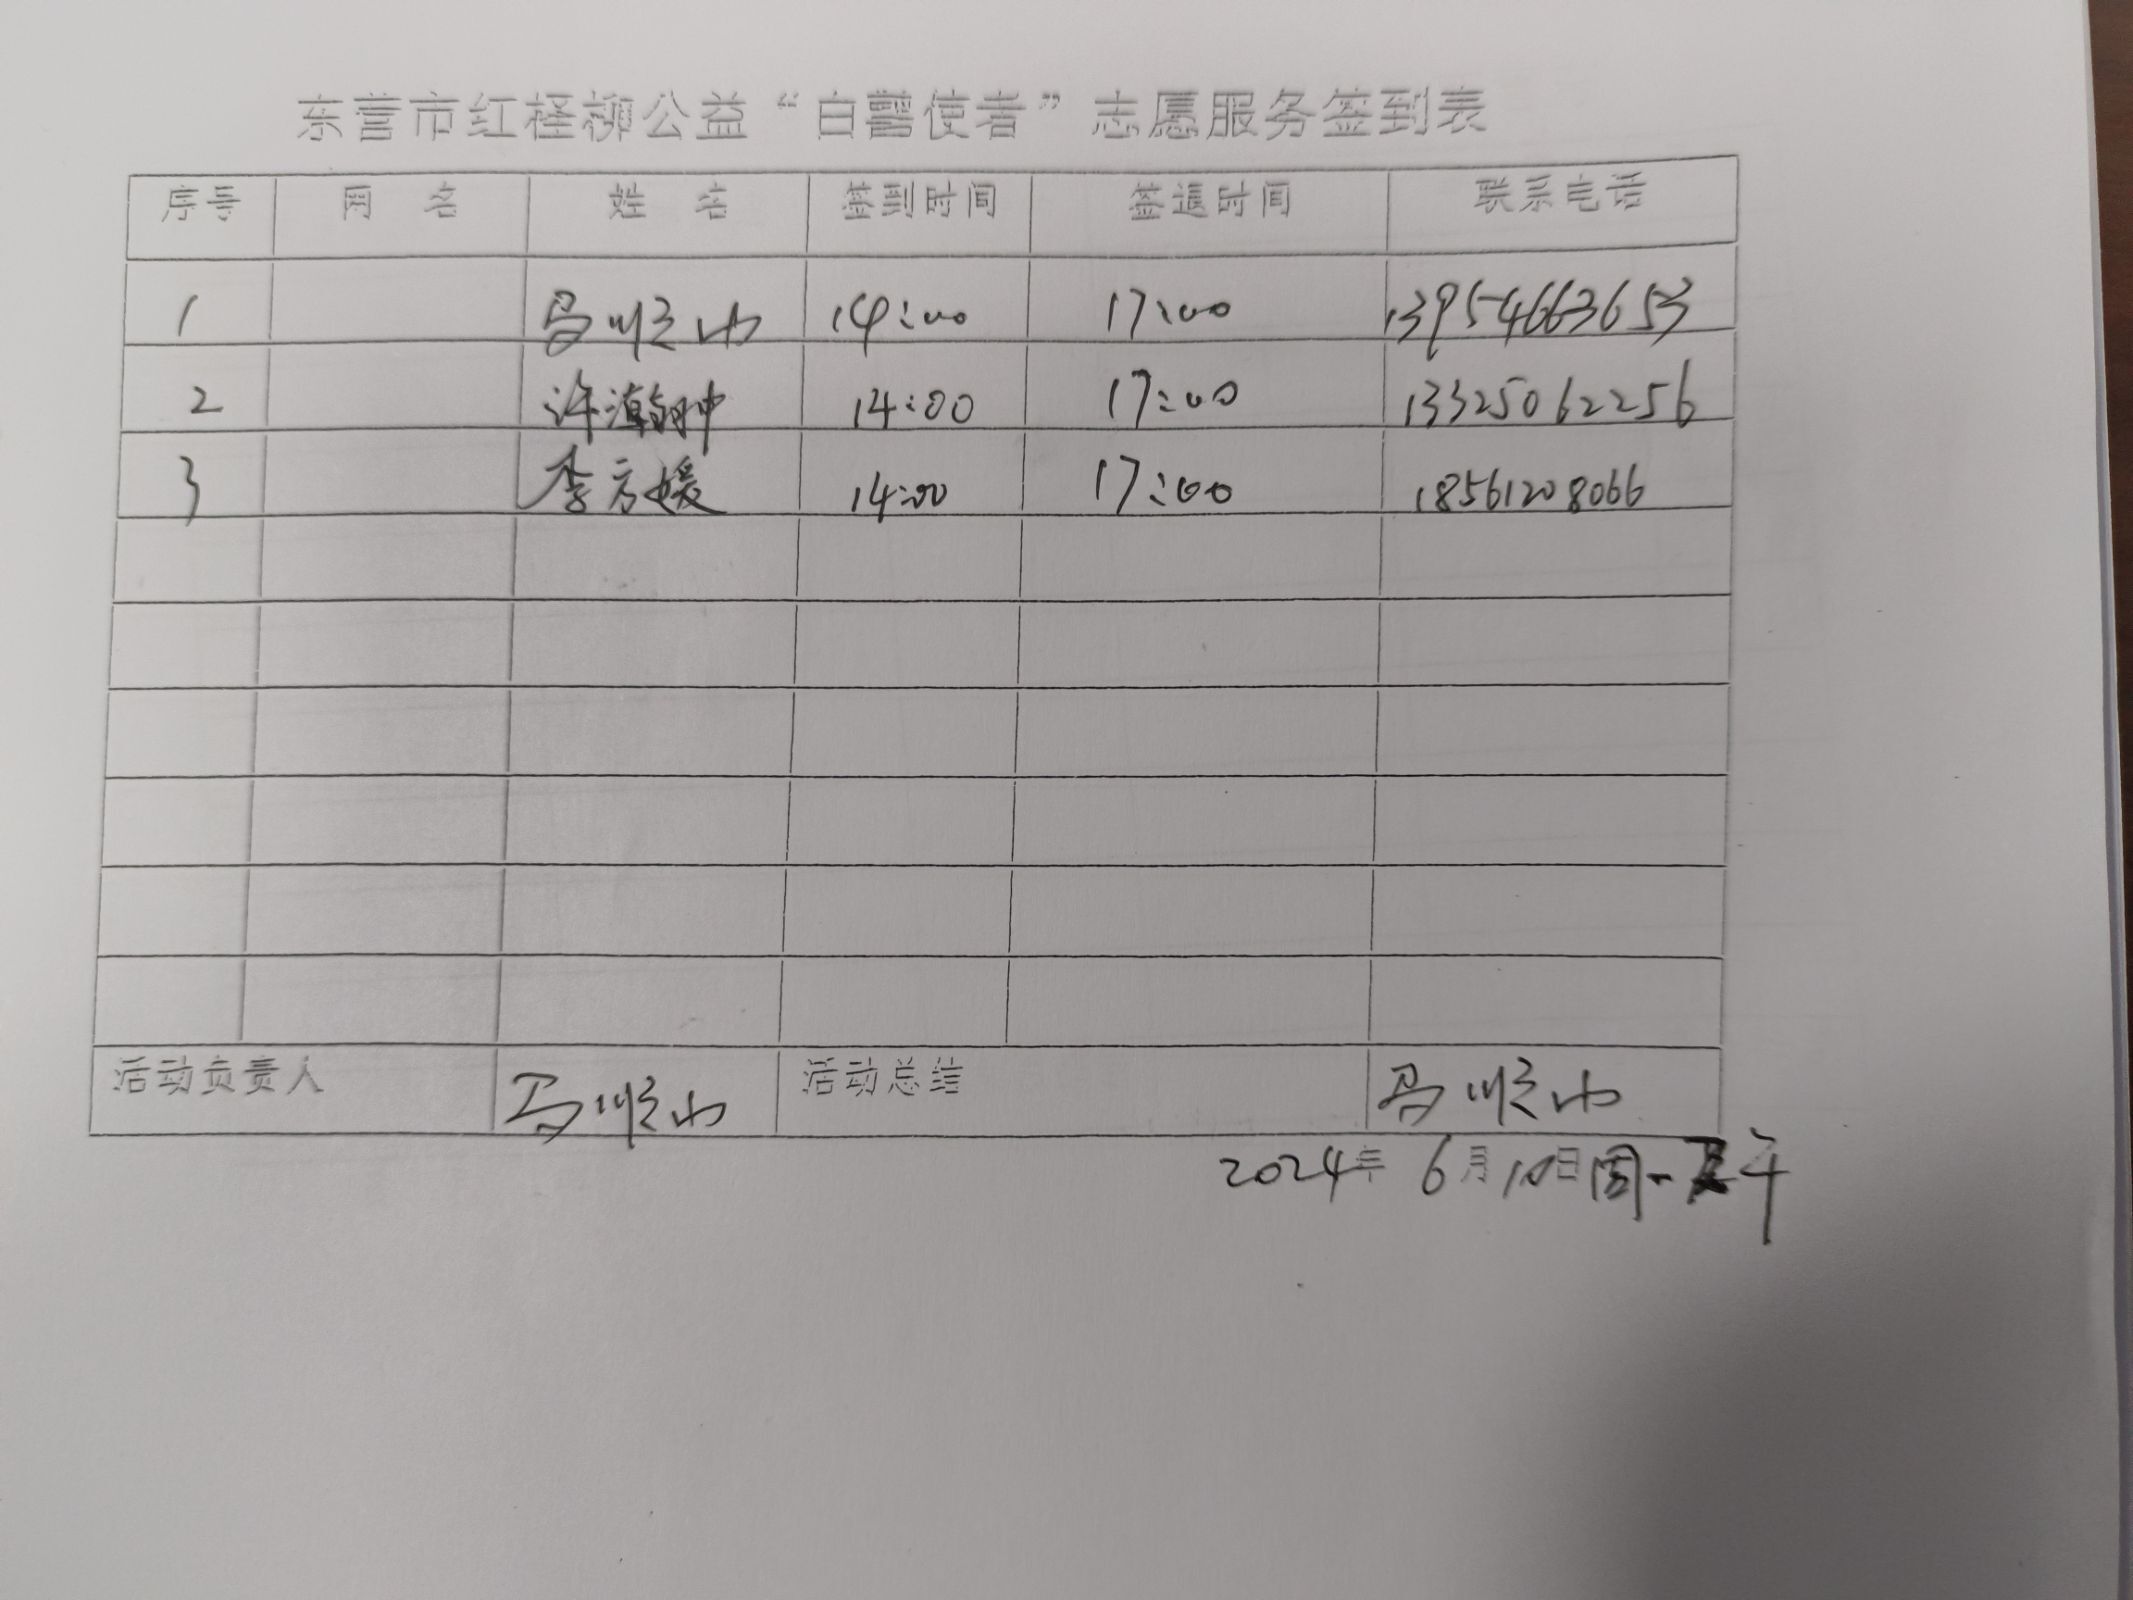 东营市红柽柳公益“白鹭使者”志愿服务签到表
序号 网 名 姓 名 签到时间 签退时间 联系电话
1 马顺山 14:00 17:00 13954663653
2 许瀚翀 14:00 17:00 13325062256
3 李方媛 14:00 17:00 18561208066
活动负责人 马顺山 活动总结 马顺山
2024年 6月10日周一下午